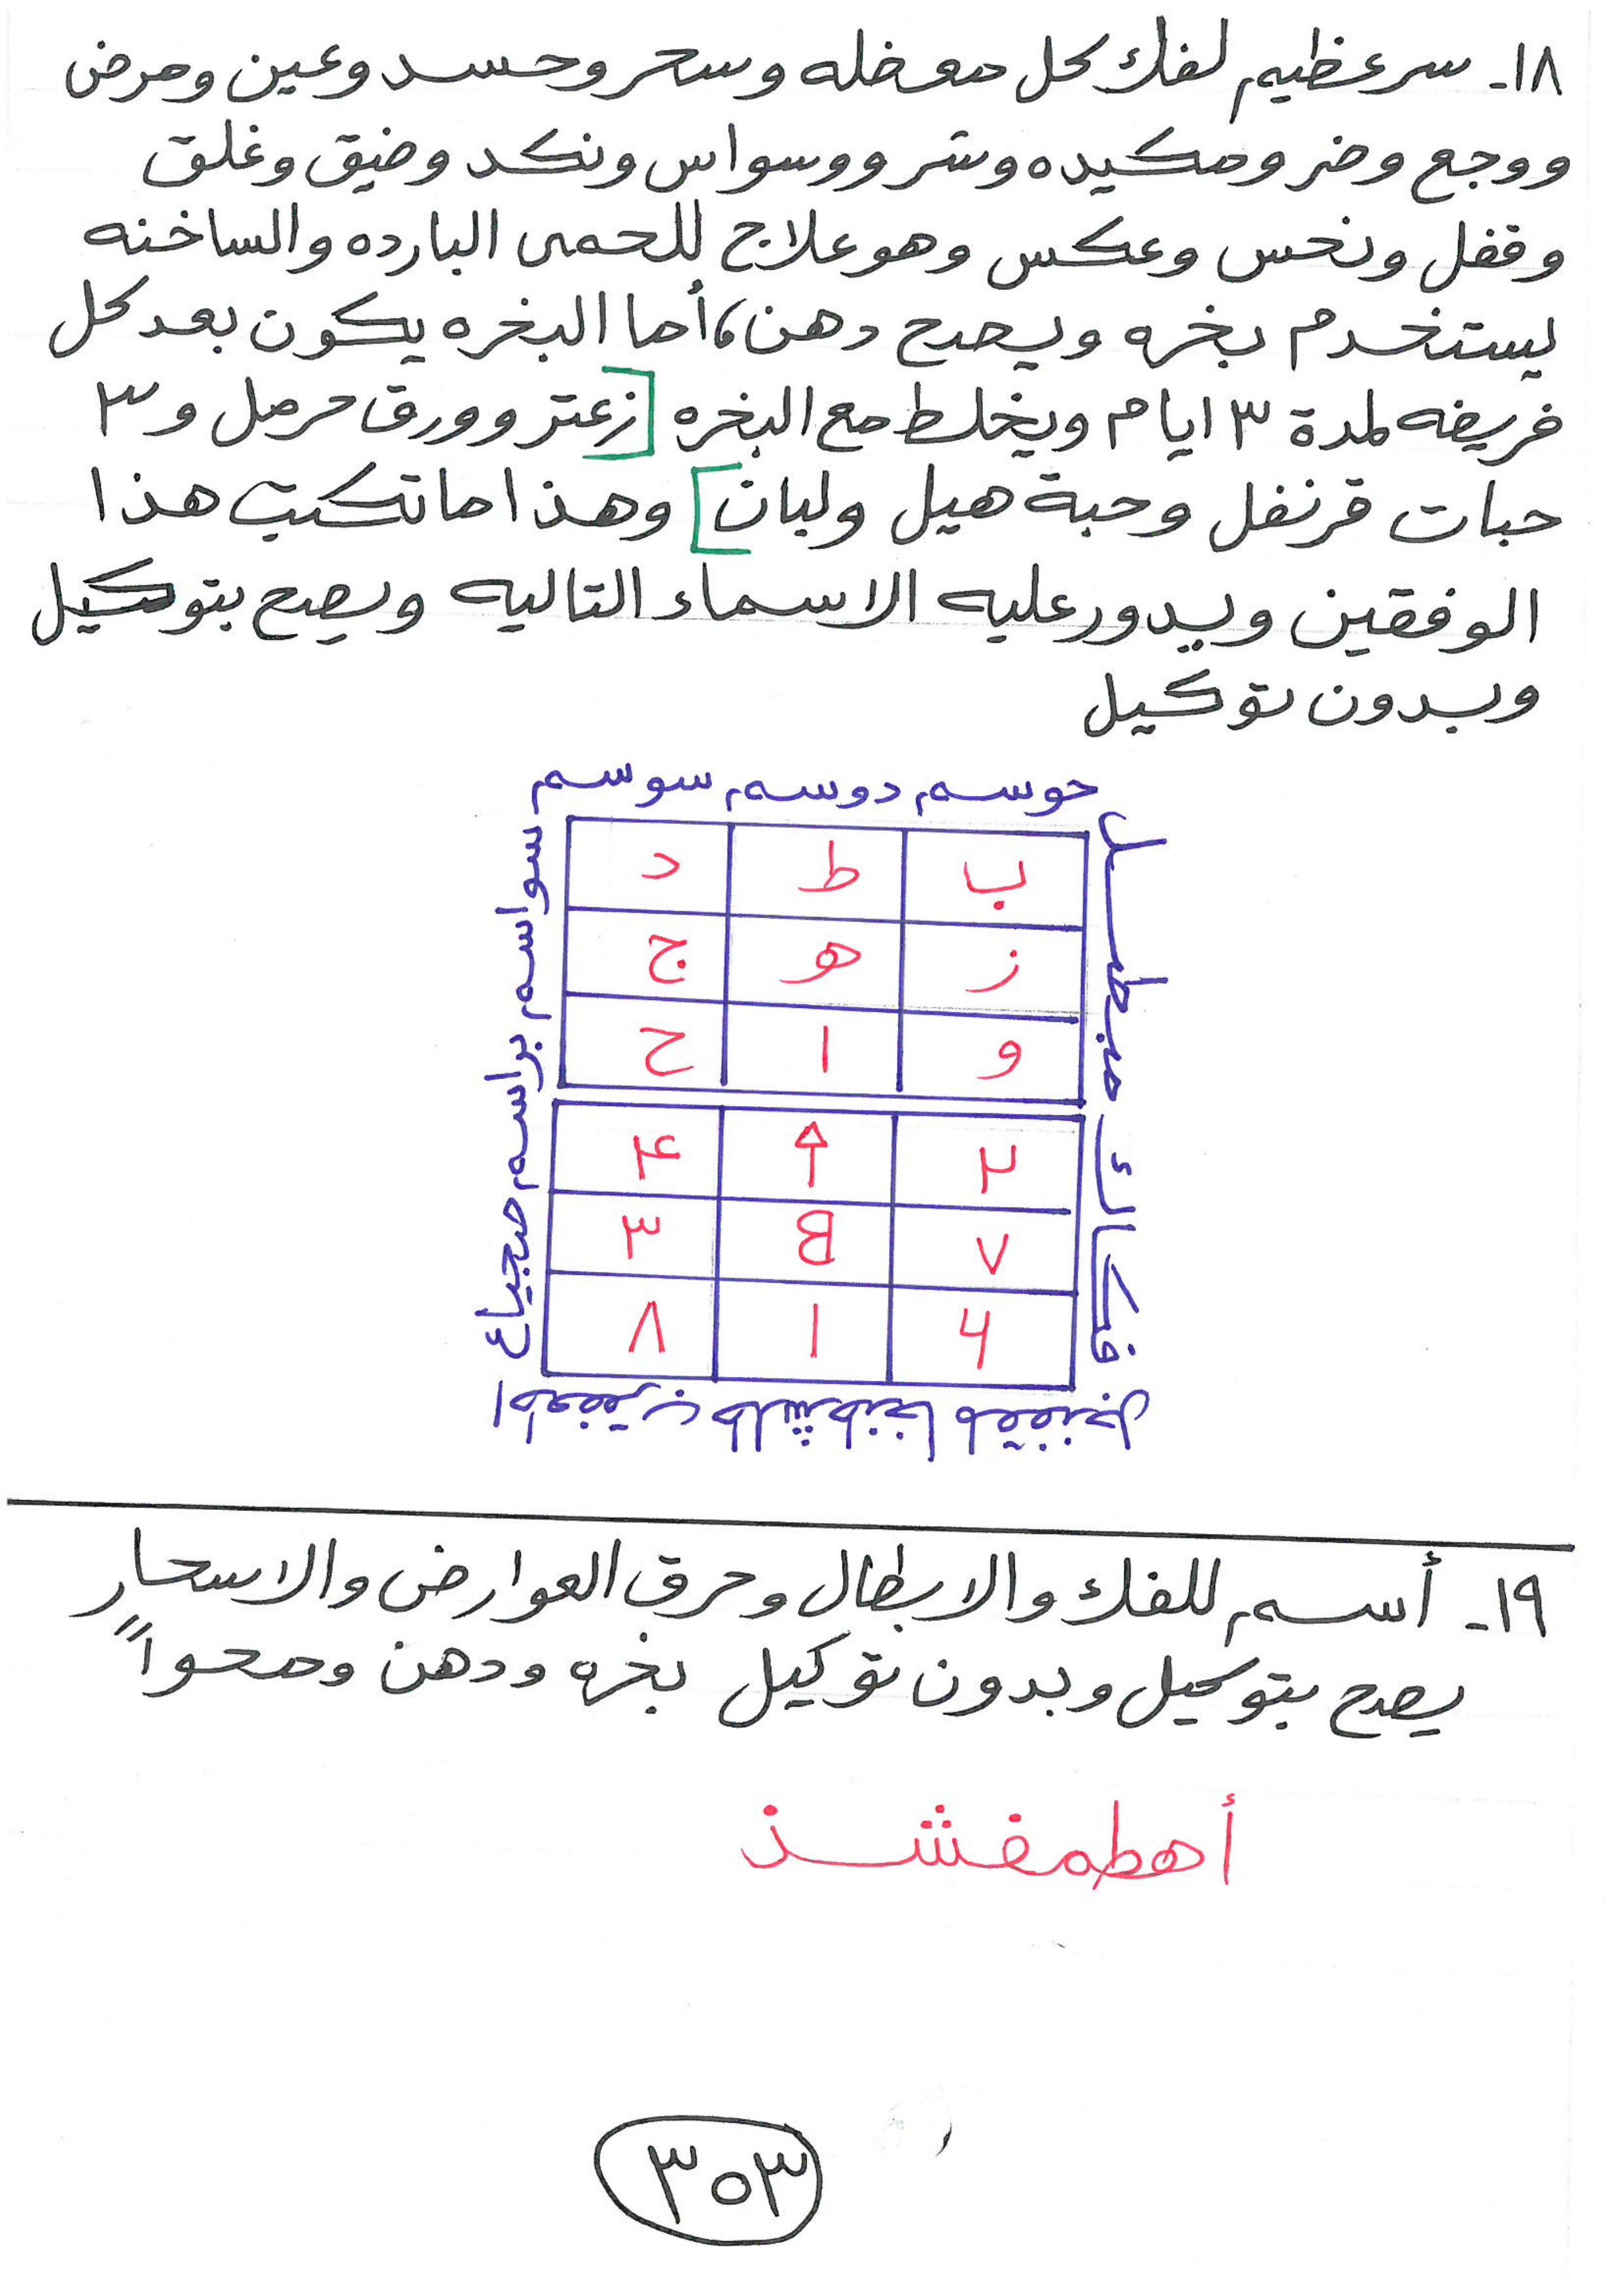 ١٨- سر عظيم لفك كل معضله وسحر وحسد وعين ومرض
ووجع وضر ومكيده وشر ووسواس ونكد وضيق وغلق
وقفل ونحس وعكس وهو علاج للحمى البارده والساخنه
يستخدم بخره ويصح دهن، أما البخره يكون بعد كل
فريضه لمدة ٣ ايام ويخلط مع البخره [زعتر وورق حرمل و٣
حبات قرنفل وحبة هيل ولبان] وهذا ما تكتب هذا
الوفقين ويدور عليه الاسماء التاليه ويصح بتوكيل
وبدون توكيل
حوسم دوسم سوسم
سواسم براسم
مبطل
فكاك
ب ط د
ز هو ج
و ا ح
٢ ٤
٧ B ٣
٦ ١ ٨
١٩- أسم للفك والابطال وحرق العوارض والاسحار
يصح بتوكيل وبدون توكيل بخره ودهن ومحواً
أهطمفشذ
٣٥٣